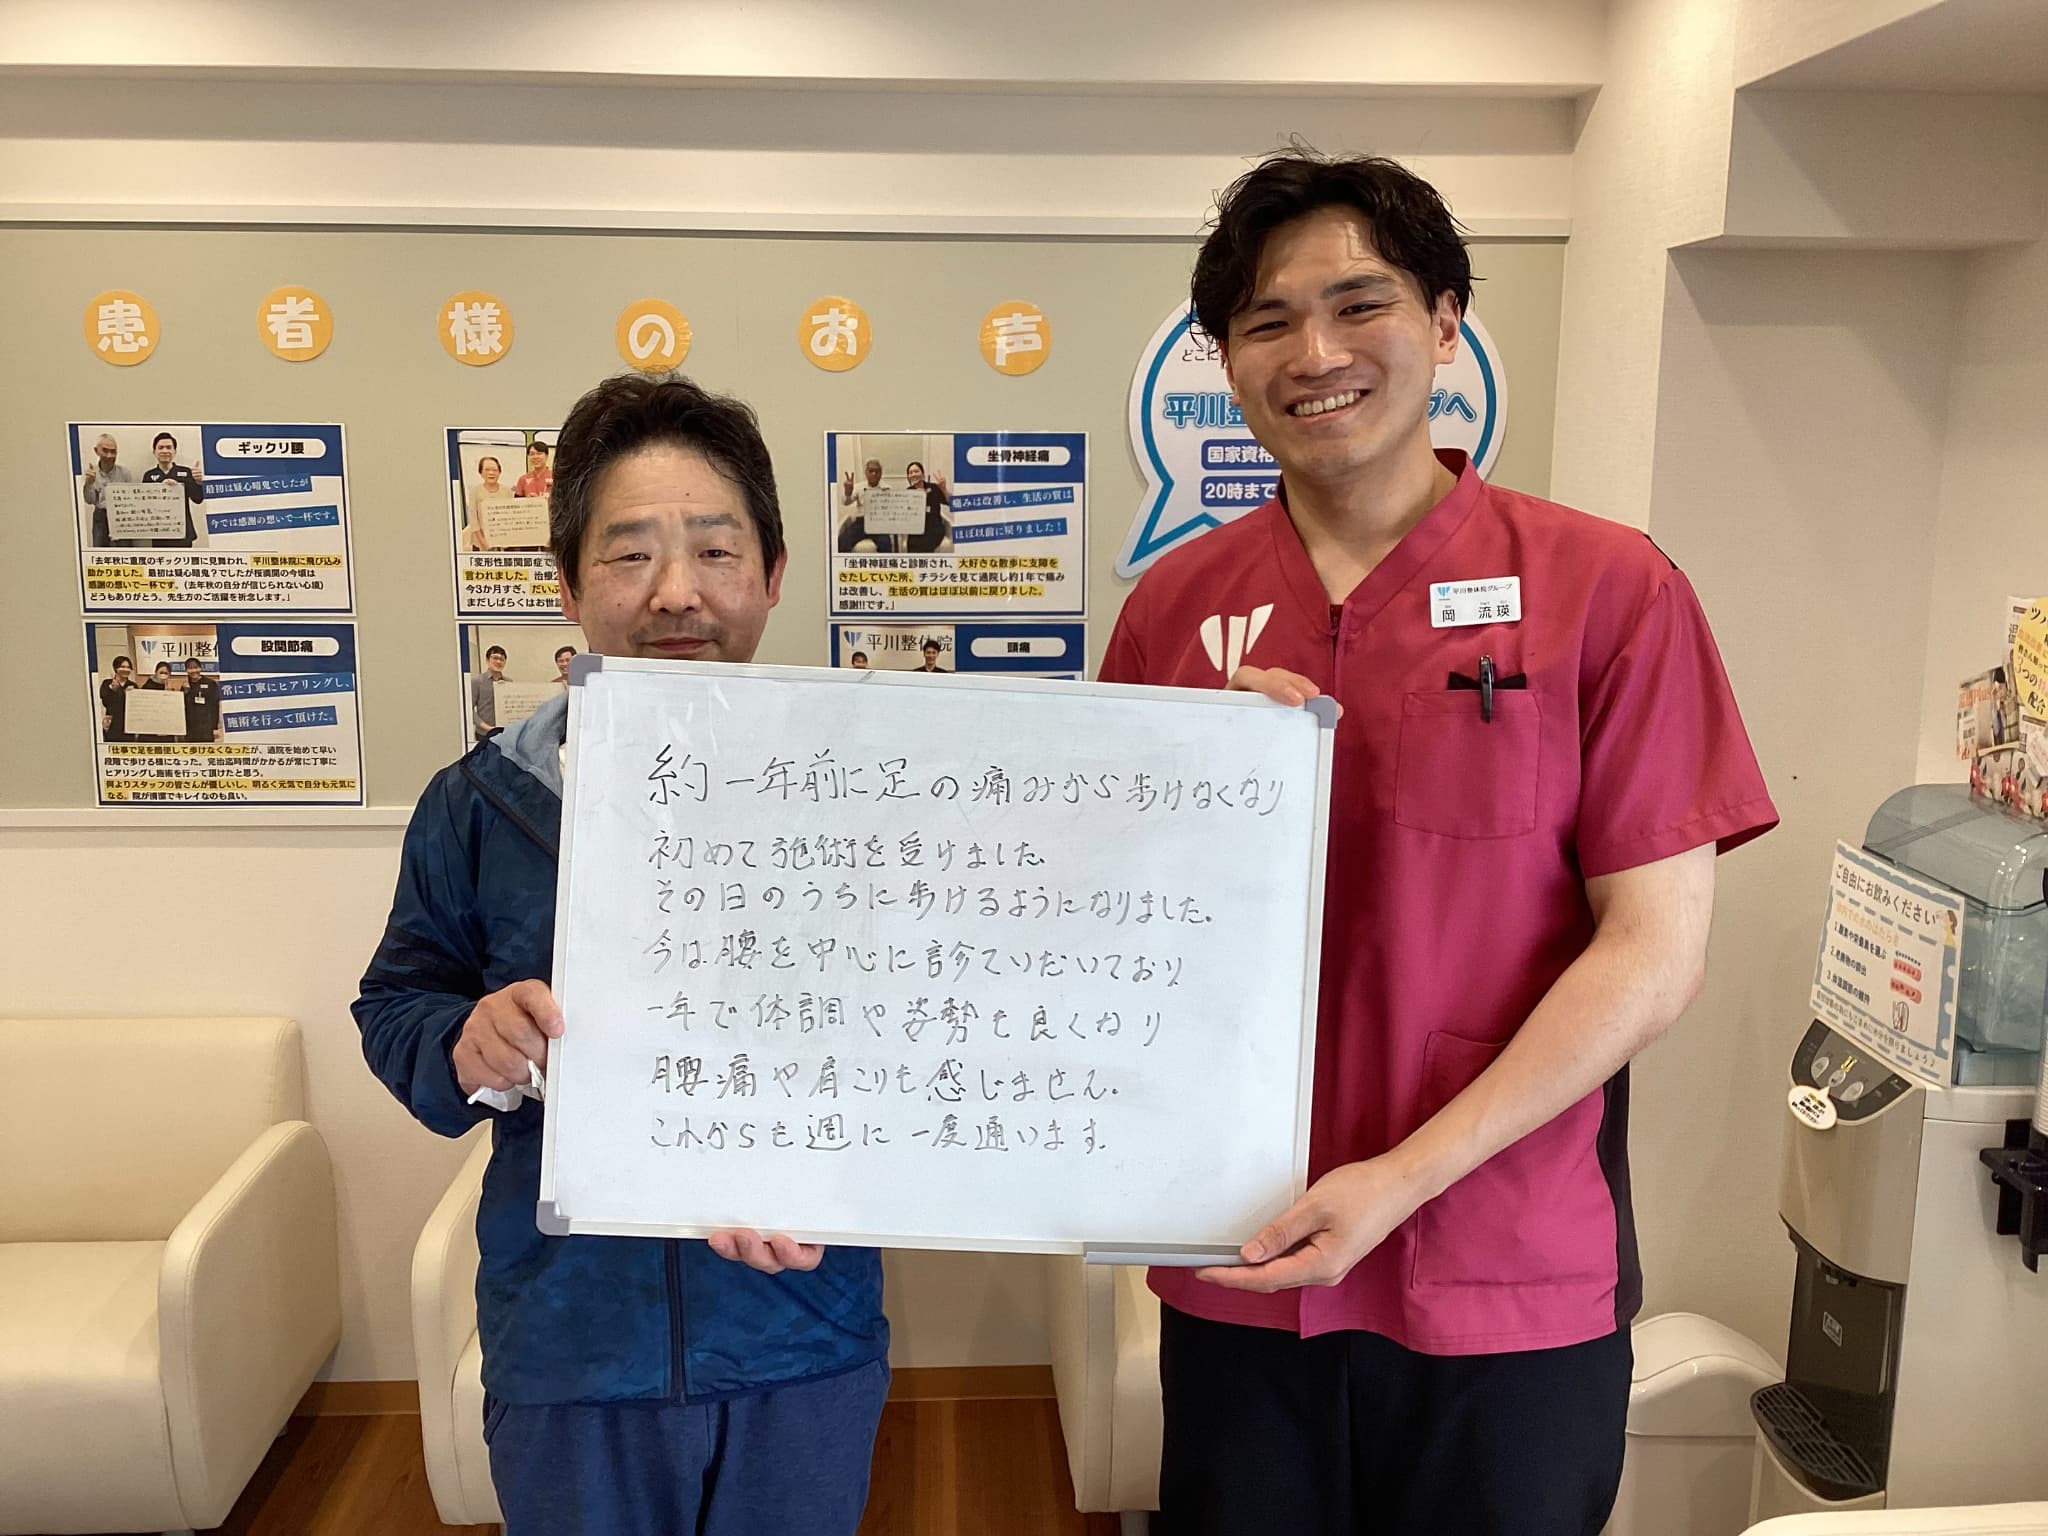 患者様のお声
どこに
平川整
プへ
国家資格
20時まで
ギックリ腰
最初は疑心暗鬼でしたが
今では感謝の想いで一杯です。
「去年秋に重度のギックリ腰に見舞われ、平川整体院に飛び込み
助かりました。最初は疑心暗鬼？でしたが桜満開の今頃は
感謝の想いで一杯です。（去年秋の自分が信じられない心境）
どうもありがとう、先生方のご活躍を祈念します。」
「変形性膝関節症で
言われました。治療2
今3か月すぎ、だいぶ
まだしばらくはお世話
坐骨神経痛
痛みは改善し、生活の質は
ほぼ以前に戻りました！
「坐骨神経痛と診断され、大好きな散歩に支障を
きたしていた所、チラシを見て通院し約1年で痛み
は改善し、生活の質はほぼ以前に戻りました。
感謝!!です。」
平川整体
股関節痛
常に丁寧にヒアリングし、
施術を行って頂けた。
「仕事で足を酷使して歩けなくなったが、通院を始めて早い
段階で歩ける様になった。完治迄時間がかかるが常に丁寧に
ヒアリングし施術を行って頂けたと思う。
何よりスタッフの皆さんが優しいし、明るく元気で自分も元気に
なる。院が清潔でキレイなのも良い。
平川整体院
頭痛
平川整体院グループ
岡 流瑛
約一年前に足の痛みから歩けなくなり
初めて施術を受けました。
その日のうちに歩けるようになりました。
今は腰を中心に診ていだいており
一年で体調や姿勢も良くなり
腰痛や肩こりも感じません。
これからも週に一度通います。
3つの
配合
ご自由にお飲みください
体内での水のはたらき
1.酸素や栄養素を運ぶ
2.老廃物の排出
3.体温調節の維持